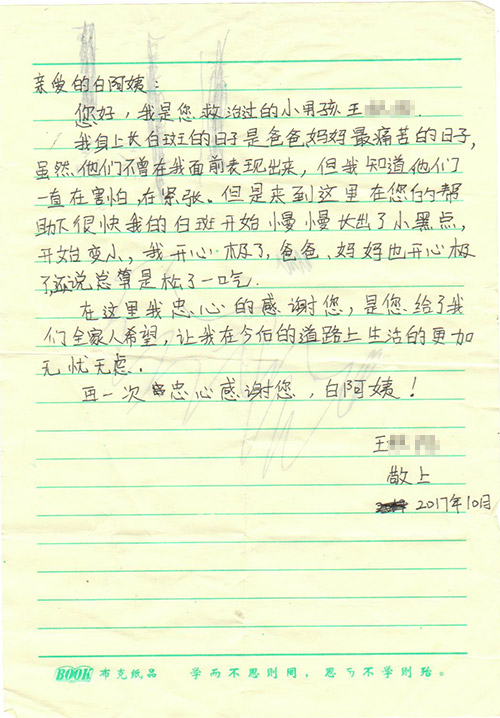 亲爱的白阿姨：
您好，我是您救治过的小男孩王
我身上长白斑的日子是爸爸、妈妈最痛苦的日子，
虽然他们不曾在我面前表现出来，但我知道他们
一直在害怕，在紧张。但是来到这里在您的帮
助下很快我的白斑开始慢慢长出了小黑点，
开始变小，我开心极了，爸爸、妈妈也开心极
了，还说总算是松了一口气.
在这里我忠心的感谢您，是您给了我
们全家人希望，让我在今后的道路上生活的更加
无忧无虑.
再一次忠心感谢您，白阿姨！
王
敬上
2017年10月
BOOK 布克纸品 学而不思则罔，思而不学则殆。